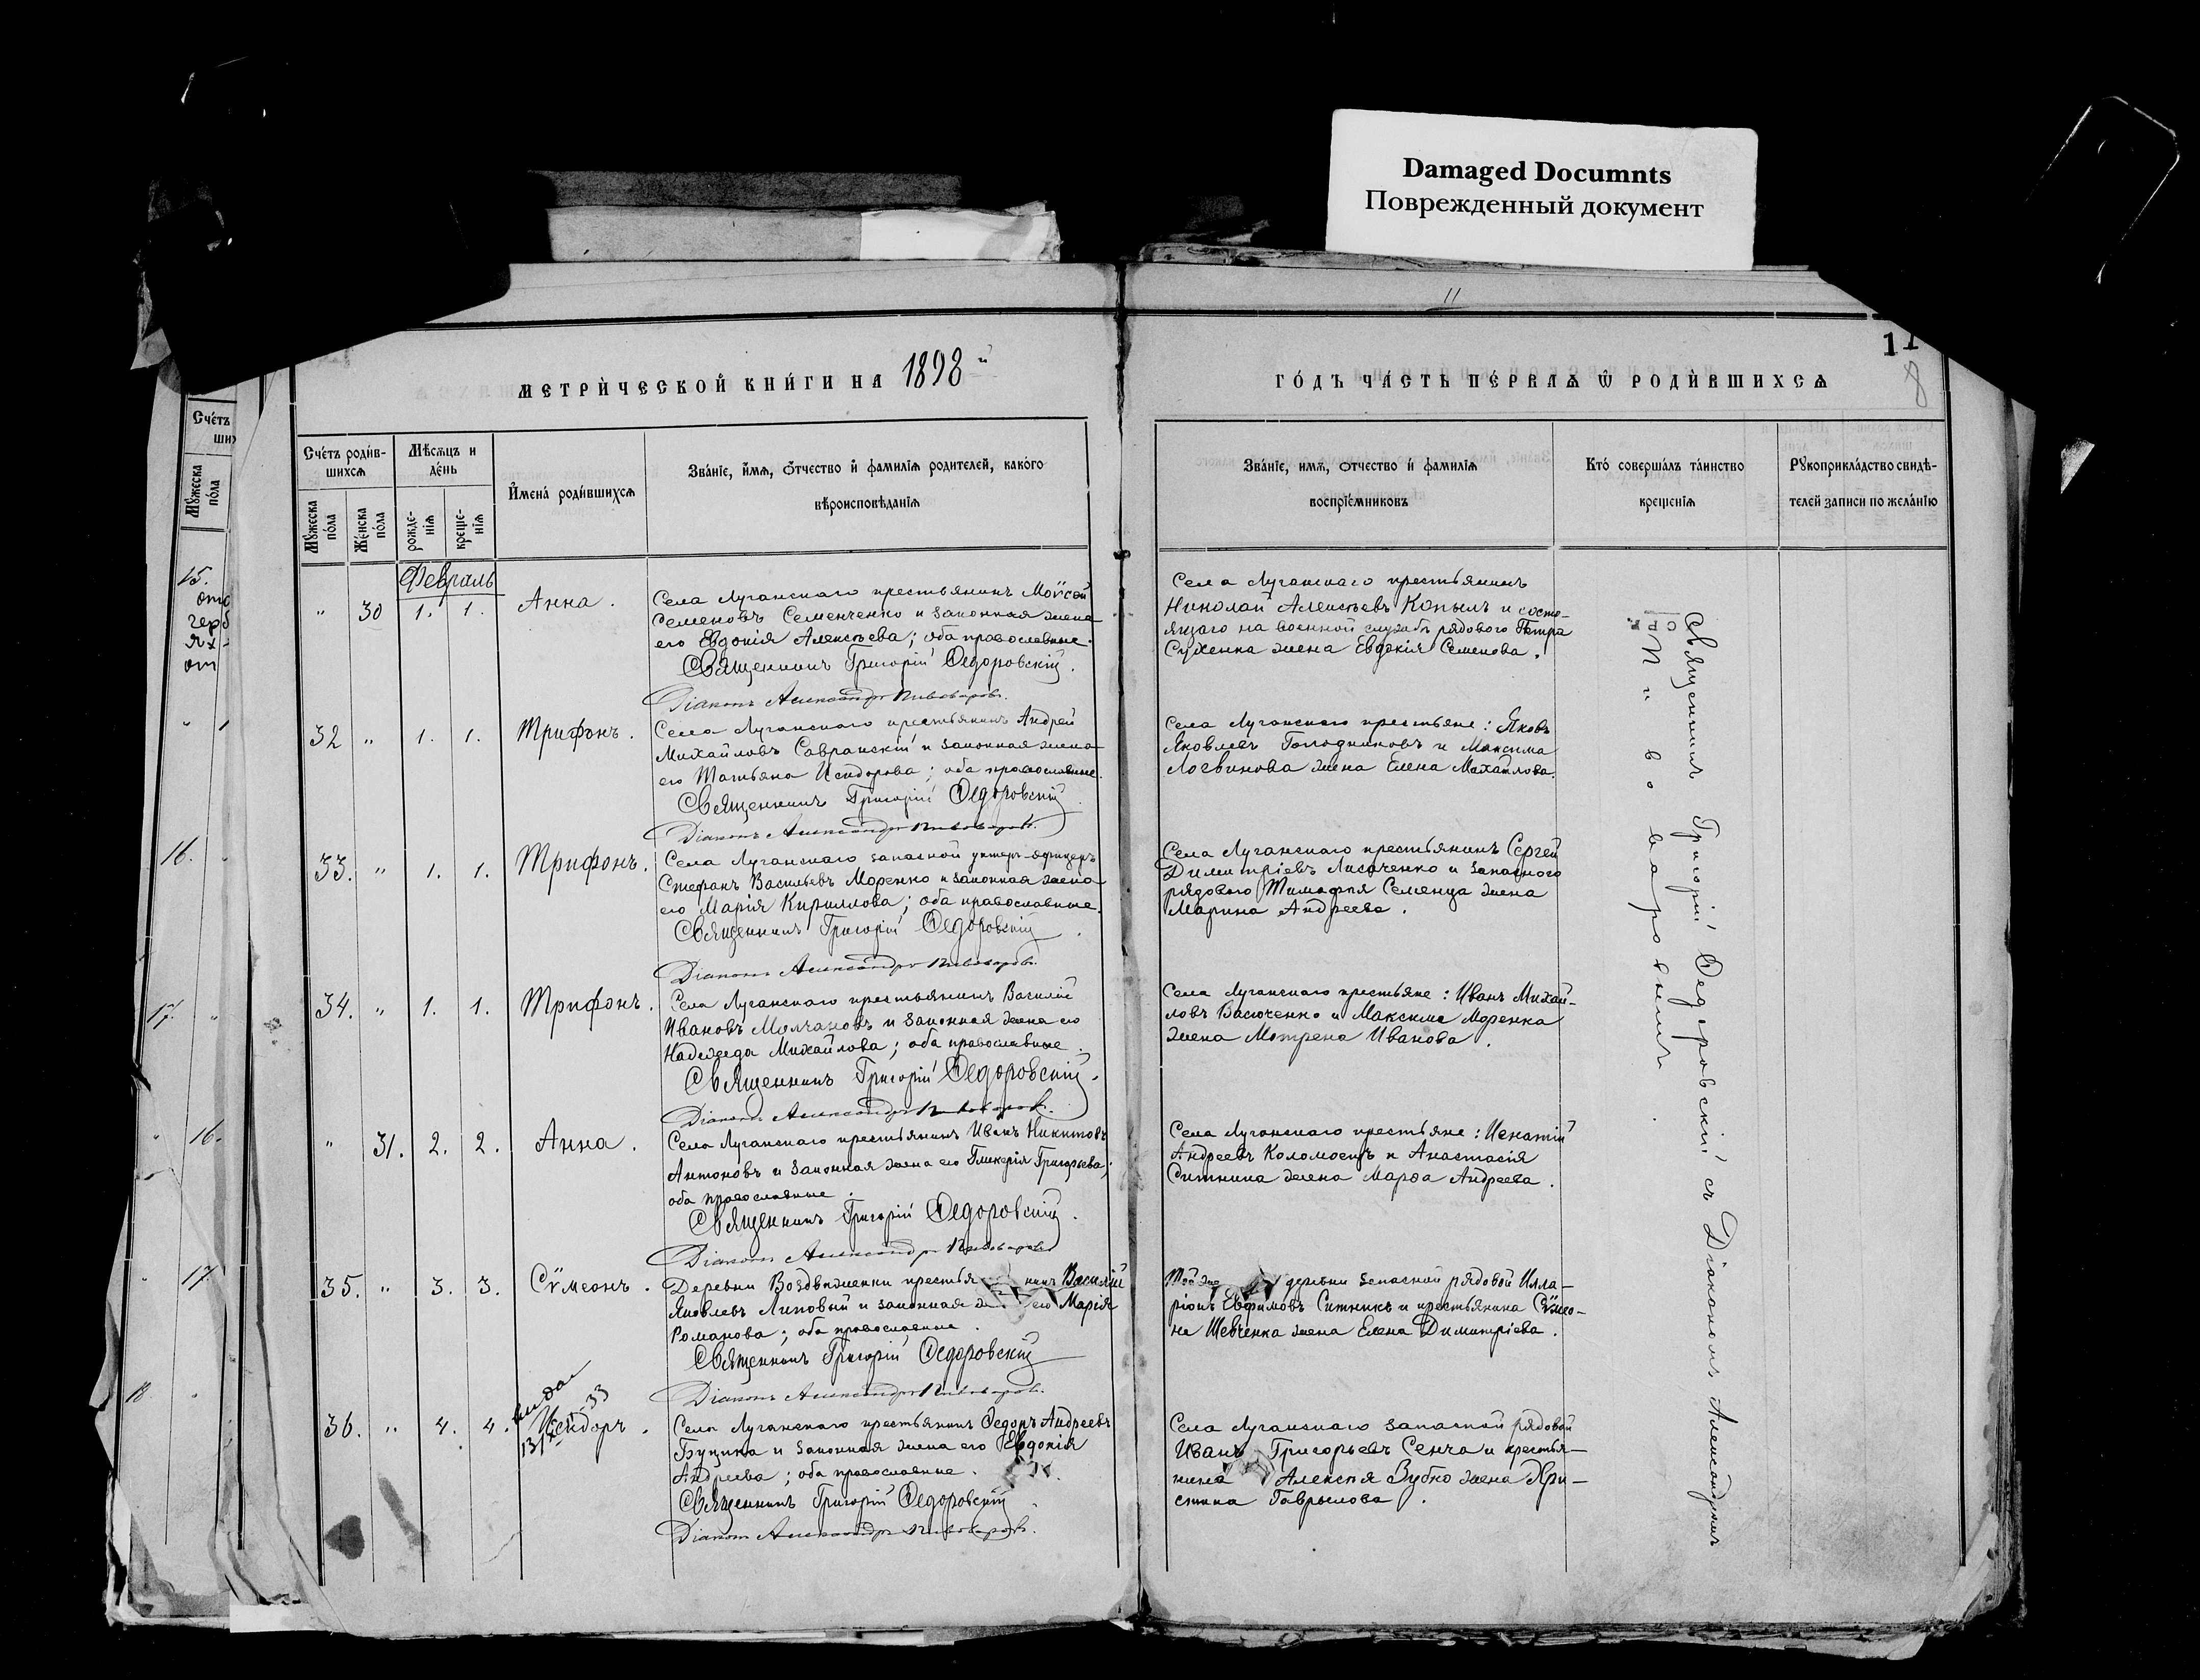 Damaged Documnts
Поврежденный документ
11
11
8
МЕТРИ́ЧЕСКОЙ КНИ́ГИ НА 1898й
ГО́ДЪ ЧА́СТЬ ПЕ́РВАѦ Ѡ РОДИ́ВШИХСѦ
Счетъ
Мꙋжеска пола
15.
16.
17.
16.
17.
18
Счетъ родив-
шихсѧ
Мꙋжеска пола
Женска пола
Мѣсѧцъ и
день
рожде-
нїѧ
креще-
нїѧ
Имена родившихсѧ
Званїе, имѧ, отчество и фамилїѧ родителей, какого
вѣроисповѣданїѧ
Званїе, имѧ, отчество и фамилїѧ
воспрїемниковъ
Кто совершалъ таинство
крещенїѧ
Рꙋкоприкладство свидѣ-
телей записи по желанїю
Февраль
" 30 1. 1. Анна.
Села Луганскаго крестьянинъ Моѵсей
Семеновъ Семенченко и законная жена
его Евдокія Алексѣева; оба православные.
Священникъ Григорій Ѳедоровскій.
Діаконъ Александръ Пивоваровъ.
Села Луганскаго крестьянинъ
Николай Алексѣевъ Копылъ и состо-
ящаго на военной службѣ рядового Петра
Сухенка жена Евдокія Семенова.
32 " 1. 1. Трифонъ.
Села Луганскаго крестьянинъ Андрей
Михайловъ Савранскій и законная жена
его Татьяна Исидорова; оба православные.
Священникъ Григорій Ѳедоровскій
Діаконъ Александръ Пивоваровъ.
Села Луганскаго крестьяне: Яковъ
Яковлевъ и Максима
Логвинова жена Елена Михайлова.
33. " 1. 1. Трифонъ.
Села Луганскаго запасной унтеръ-офицеръ
Стефанъ Васильевъ Моренко и законная жена
его Марія Кириллова; оба православные.
Священникъ Григорій Ѳедоровскій.
Діаконъ Александръ Пивоваровъ.
Села Луганскаго крестьянинъ Сергей
Димитріевъ Лисаченко и запасного
рядового Тимофея Семенца жена
Марина Андреева.
34. " 1. 1. Трифонъ.
Села Луганскаго крестьянинъ Василій
Ивановъ Молчановъ и законная жена его
Надежда Михайлова; оба православные.
Священникъ Григорій Ѳедоровскій.
Діаконъ Александръ Пивоваровъ.
Села Луганскаго крестьяне: Иванъ Михай-
ловъ Васюченко и Максима Моренка
жена Матрена Иванова.
" 31. 2. 2. Анна.
Села Луганскаго крестьянинъ Иванъ Никитовъ
Антоновъ и законная жена его Гликерія Григорьева;
оба православные.
Священникъ Григорій Ѳедоровскій.
Діаконъ Александръ Пивоваровъ
Села Луганскаго крестьяне: Игнатій
Андреевъ Коломоецъ и Анастасія
Ситника жена Марѳа Андреева.
35. " 3. 3. Сѵмеонъ.
Деревни Воздвиженки крестья нинъ Василій
Яковлевъ Липовый и законная его Марія
Романова; оба православные.
Священникъ Григорій Ѳедоровскій
Діаконъ Александръ Пивоваровъ.
Той же деревни запасной рядовой Илла-
ріонъ Евфимовъ Ситникъ и крестьянина Сѵмео-
на Шевченка жена Елена Димитріева.
36. " 4. 4. Исидоръ.
Села Луганскаго крестьянинъ Ѳедоръ Андреевъ
Буцика и законная жена его Евдокія
Андреева; оба православные.
Священникъ Григорій Ѳедоровскій
Діаконъ Александръ Пивоваровъ.
Села Луганскаго запасной рядовой
Иванъ Григорьевъ Сенча и крестья-
нина Алексѣя Зубко жена Хри-
стина Гаврылова.
Священникъ Григорій Ѳедоровскій съ Діакономъ Александромъ
Пивоваровымъ.